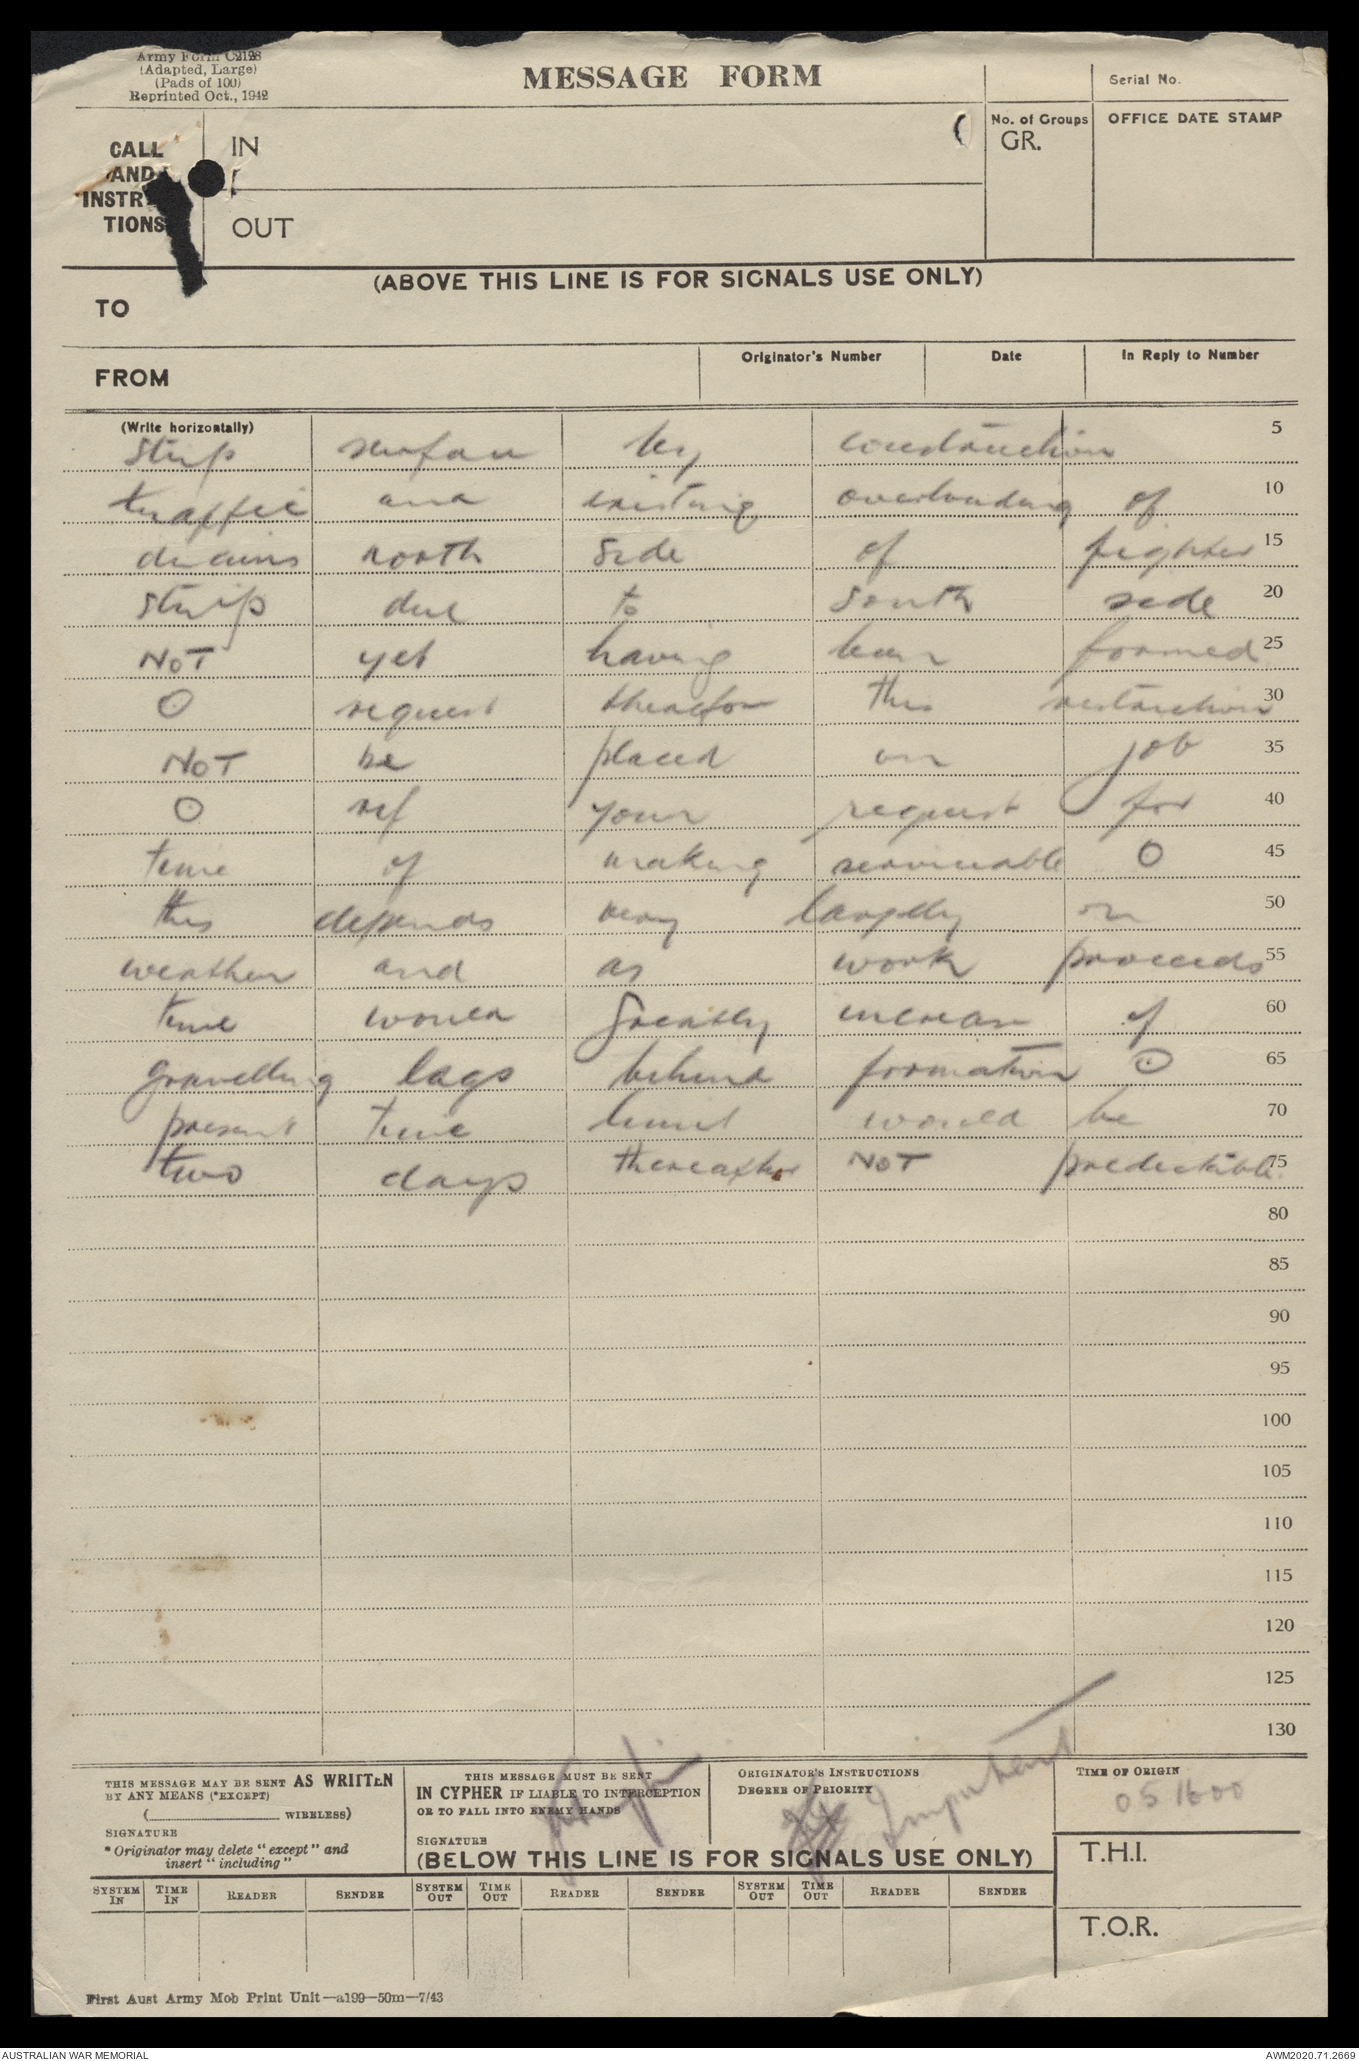 Army Form C2128
(Adapted, Large)
(Pads of 100)
Reprinted Oct., 1942
MESSAGE FORM
Serial No.
CALL AND INSTR TIONS
IN
OUT
No. of Groups
GR.
OFFICE DATE STAMP
(ABOVE THIS LINE IS FOR SIGNALS USE ONLY)
TO
FROM
Originator's Number
Date
In Reply to Number
(Write horizontally)
strip surface by construction 5
traffic and existing overloading of 10
drains north side of fighter 15
strip due to south side 20
NOT yet having been formed 25
O request therefore this restriction 30
NOT be placed on job 35
O ref your request for 40
time of making serviceable O 45
this depends very largely on 50
weather and as work proceeds 55
time would greatly increase if 60
gravelling lags behind formation O 65
present time limit would be 70
two days thereafter NOT predictible 75
80
85
90
95
100
105
110
115
120
125
130
THIS MESSAGE MAY BE SENT AS WRITTEN
BY ANY MEANS (*EXCEPT)
( WIRELESS)
SIGNATURE
* Originator may delete "except" and
insert "including"
THIS MESSAGE MUST BE SENT
IN CYPHER IF LIABLE TO INTERCEPTION
OR TO FALL INTO ENEMY HANDS
SIGNATURE
ORIGINATOR'S INSTRUCTIONS
DEGREE OF PRIORITY
Important
TIME OF ORIGIN
051600
(BELOW THIS LINE IS FOR SIGNALS USE ONLY)
T.H.I.
SYSTEM IN TIME IN READER SENDER SYSTEM OUT TIME OUT READER SENDER SYSTEM OUT TIME OUT READER SENDER
T.O.R.
First Aust Army Mob Print Unit—a199—50m—7/43
AUSTRALIAN WAR MEMORIAL
AWM2020.71.2669